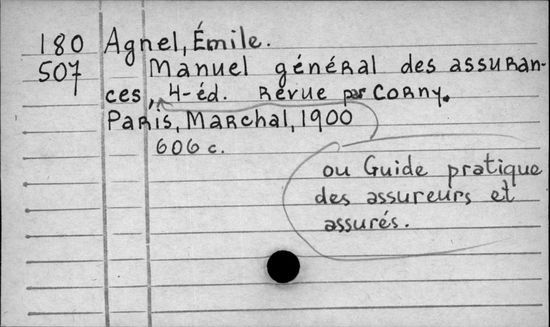 180 Agnel, Émile.
507 Manuel général des assuran-
ces, 4-éd. Revue par Corny.
Paris, Marchal, 1900
606 c.
ou Guide pratique
des assureurs et
assurés.